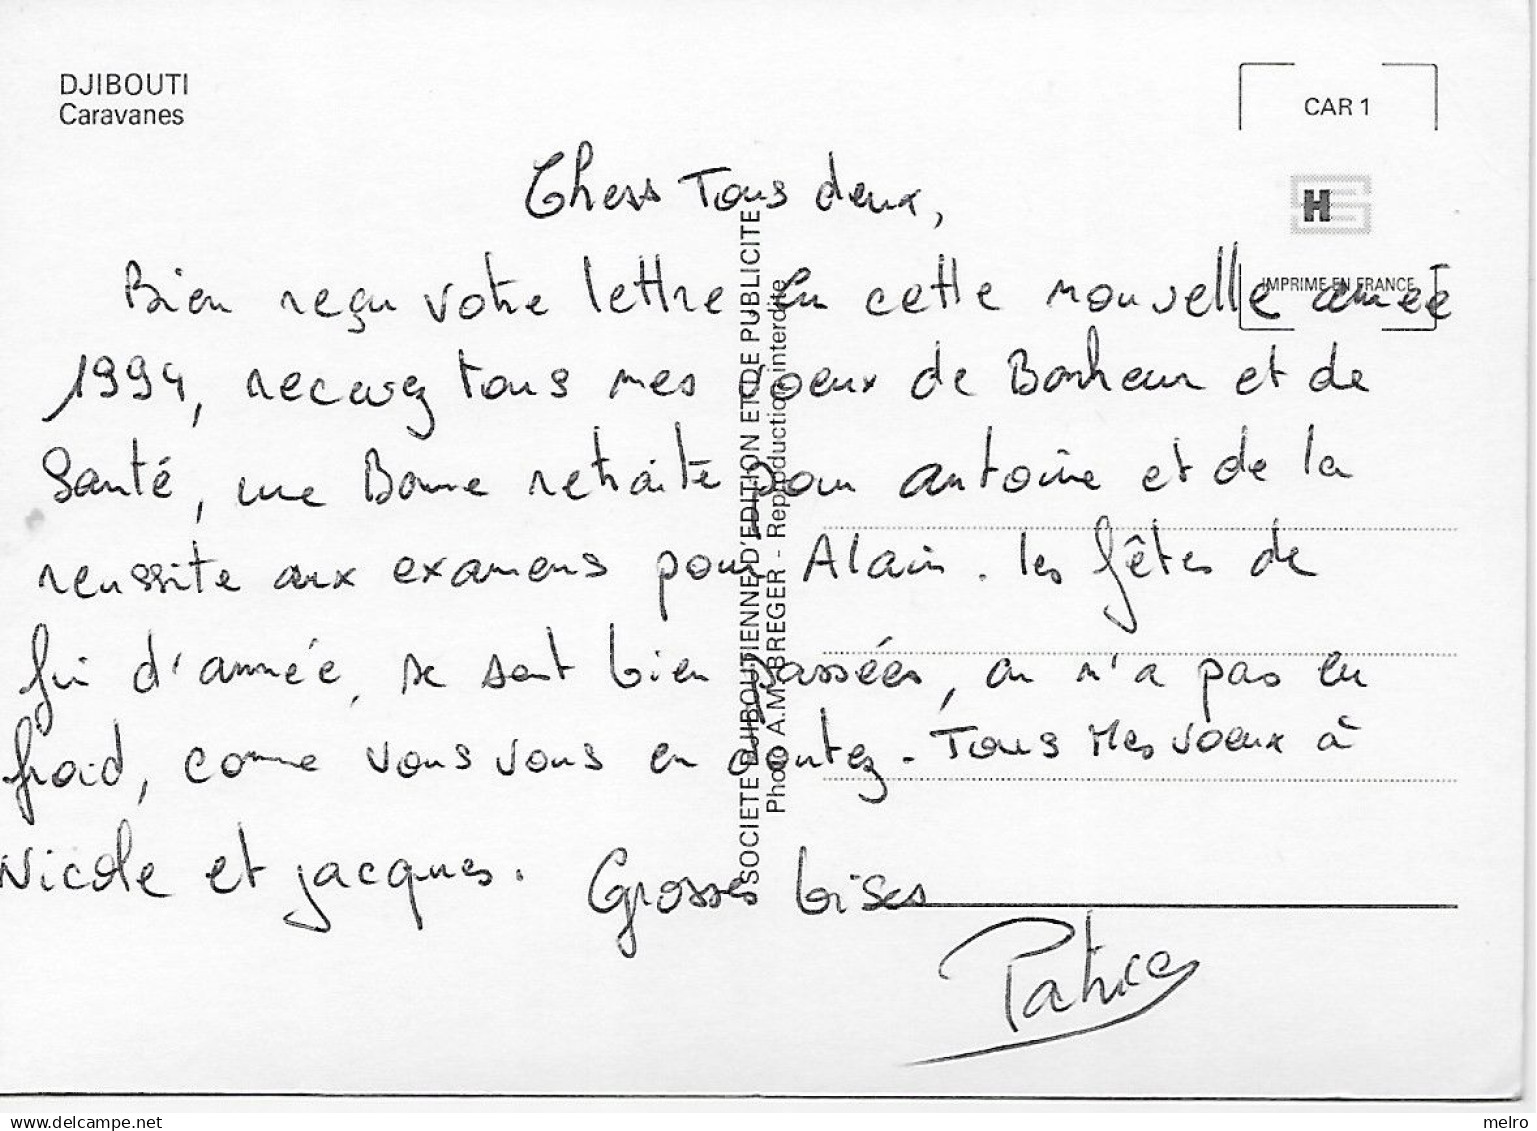 DJIBOUTI
Caravanes
CAR 1
HSE
IMPRIME EN FRANCE
Chers Tous deux,
Bien reçu votre lettre. En cette nouvelle année
1994, recevez tous mes voeux de Bonheur et de
Santé, une Bonne retraite pour antoine et de la
reussite aux examens pour Alain. les fêtes de
fin d'année, se sont bien passées, on n'a pas eu
froid, comme vous vous en doutez. Tous Mes voeux à
Nicole et jacques. Grosses bises
Patrice
SOCIETE DJIBOUTIENNE D'EDITION ET DE PUBLICITE
Photo A.M. BREGER - Reproduction interdite
www.delcampe.net
melro